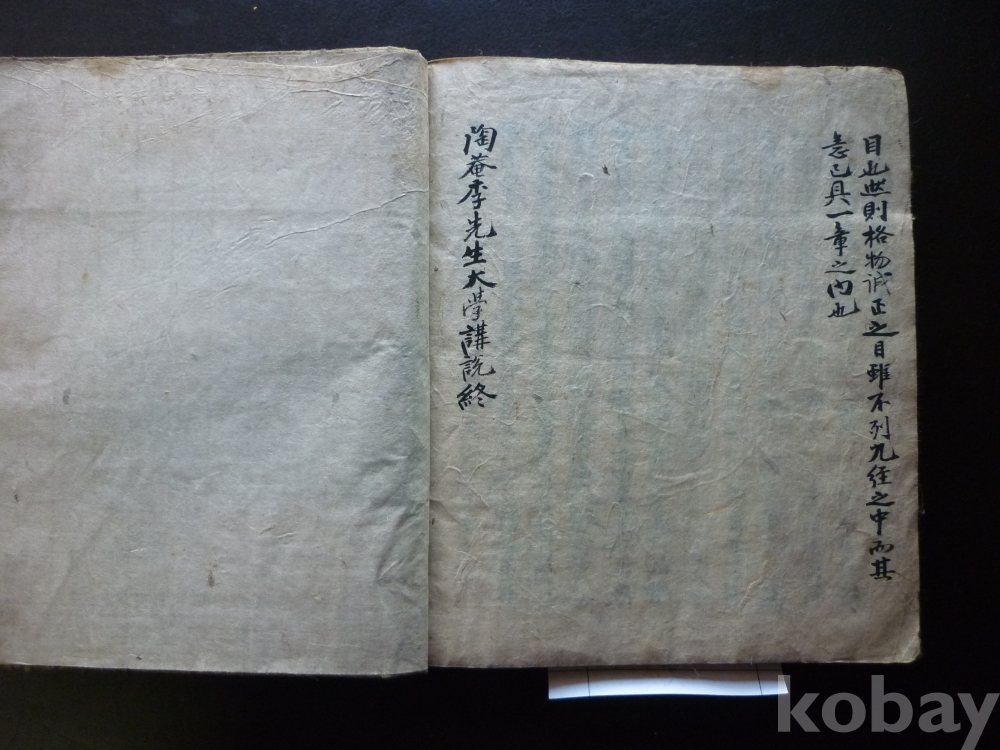 目也然則格物誠正之目雖不列九径之中而其
意已具一章之內也
陶菴李先生大學講說終
kobay